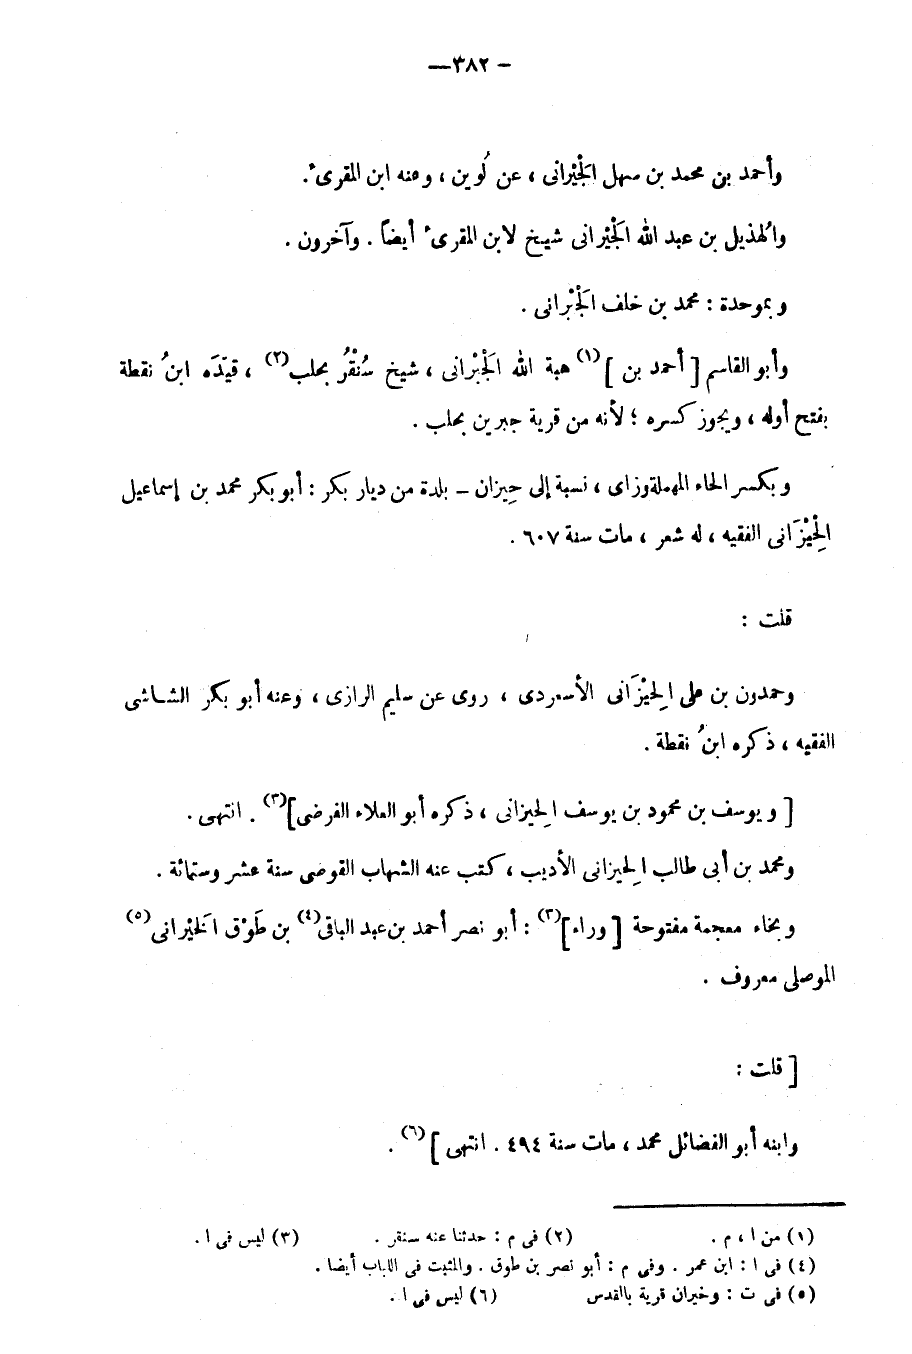 — ٣٨٢ —
وأحمد بن محمد بن سهل الجَيْرانى ، عن لُوين ، وعنه ابن المقرىء.
والهُذيل بن عبد الله الجَيْرانى شيخ لابن المقرىء أيضاً . وآخرون .
وبموحدة : محمد بن خلف الجَبْرانى .
وأبو القاسم [ أحمد بن ](١) هبة الله الجَبْرانى ، شيخ سُنْقُر بحلب(٢) ، قيّدَه ابنُ نقطة
بفتح أوله ، ويجوز كسره ؛ لأنه من قرية جبرين بحلب .
وبكسر الحاء المهملة وزاى ، نسبة إلى حِيزان – بلدة من ديار بكر : أبو بكر محمد بن إسماعيل
الحِيْزَانى الفقيه ، له شعر ، مات سنة ٦٠٧ .
قلت :
وحمدون بن على الحِيْزَانى الأسعردى ، روى عن سليم الرازى ، وعنه أبو بكر الشاشى
الفقيه ، ذكره ابنُ نقطة .
[ ويوسف بن محمود بن يوسف الحِيزانى ، ذكره أبو العلاء الفرضى ](٣) . انتهى .
ومحمد بن أبى طالب الحِيزانى الأديب ، كتب عنه الشهاب القوصى سنة عشر وستمائة .
وبخاء معجمة مفتوحة [ وراء ](٣) : أبو نصر أحمد بن عبد الباقى(٤) بن طَوْق الخَيْرانى(٥)
الموصلى معروف .
[ قلت :
وابنه أبو الفضائل محمد ، مات سنة ٤٩٤ . انتهى ](٦) .
(١) من ا ، م . (٢) فى م : حدثنا عنه سنقر . (٣) ليس فى ا .
(٤) فى ا : ابن عمر . وفى م : أبو نصر بن طوق . والمثبت فى اللباب أيضا .
(٥) فى ت : وخيران قرية بالقدس (٦) ليس فى ا .